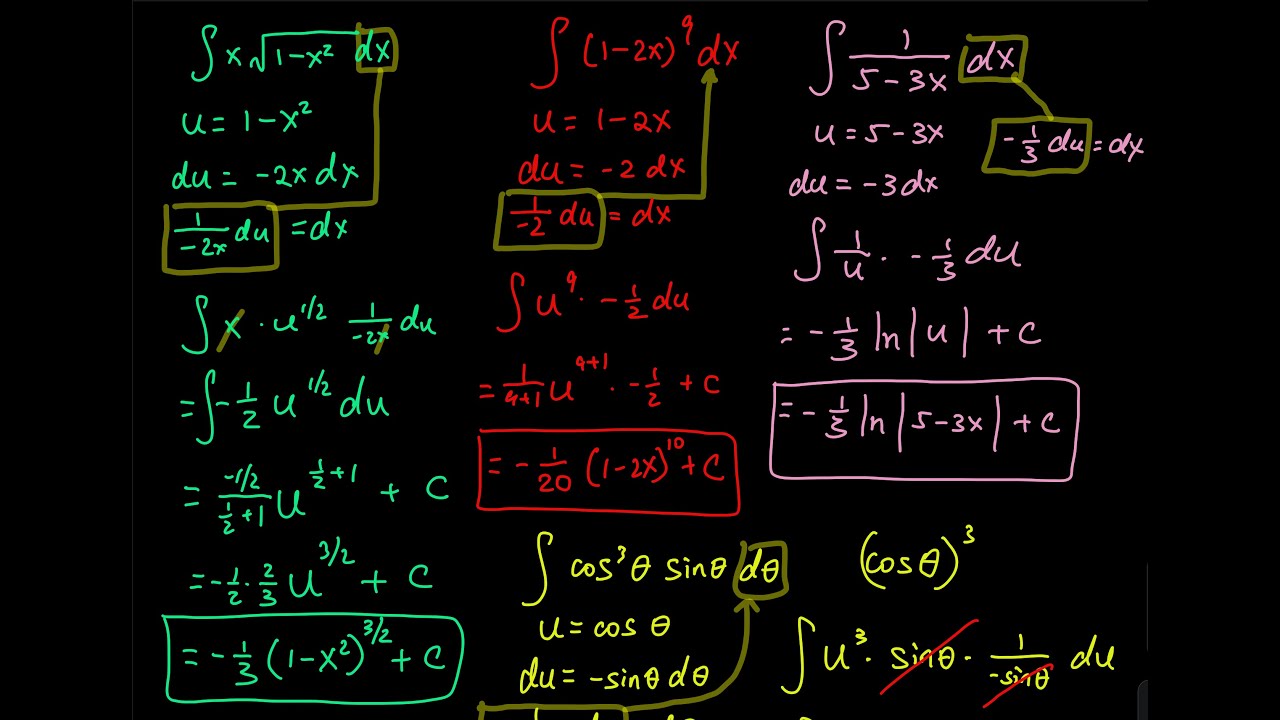 ∫ x√(1-x²) dx
u = 1-x²
du = -2x dx
1/(-2x) du = dx
∫ x · u^(1/2) 1/(-2x) du
= ∫ -1/2 u^(1/2) du
= (-1/2)/(1/2+1) u^(1/2+1) + C
= -1/2 · 2/3 u^(3/2) + C
= -1/3 (1-x²)^(3/2) + C
∫ (1-2x)^9 dx
u = 1-2x
du = -2 dx
1/(-2) du = dx
∫ u^9 · -1/2 du
= 1/(9+1) u^(9+1) · -1/2 + C
= -1/20 (1-2x)^10 + C
∫ 1/(5-3x) dx
u = 5-3x
-1/3 du = dx
du = -3dx
∫ 1/u · -1/3 du
= -1/3 ln|u| + C
= -1/3 ln|5-3x| + C
∫ cos³θ sinθ dθ
u = cos θ
du = -sinθ dθ
(cosθ)³
∫ u³ · sinθ · 1/(-sinθ) du